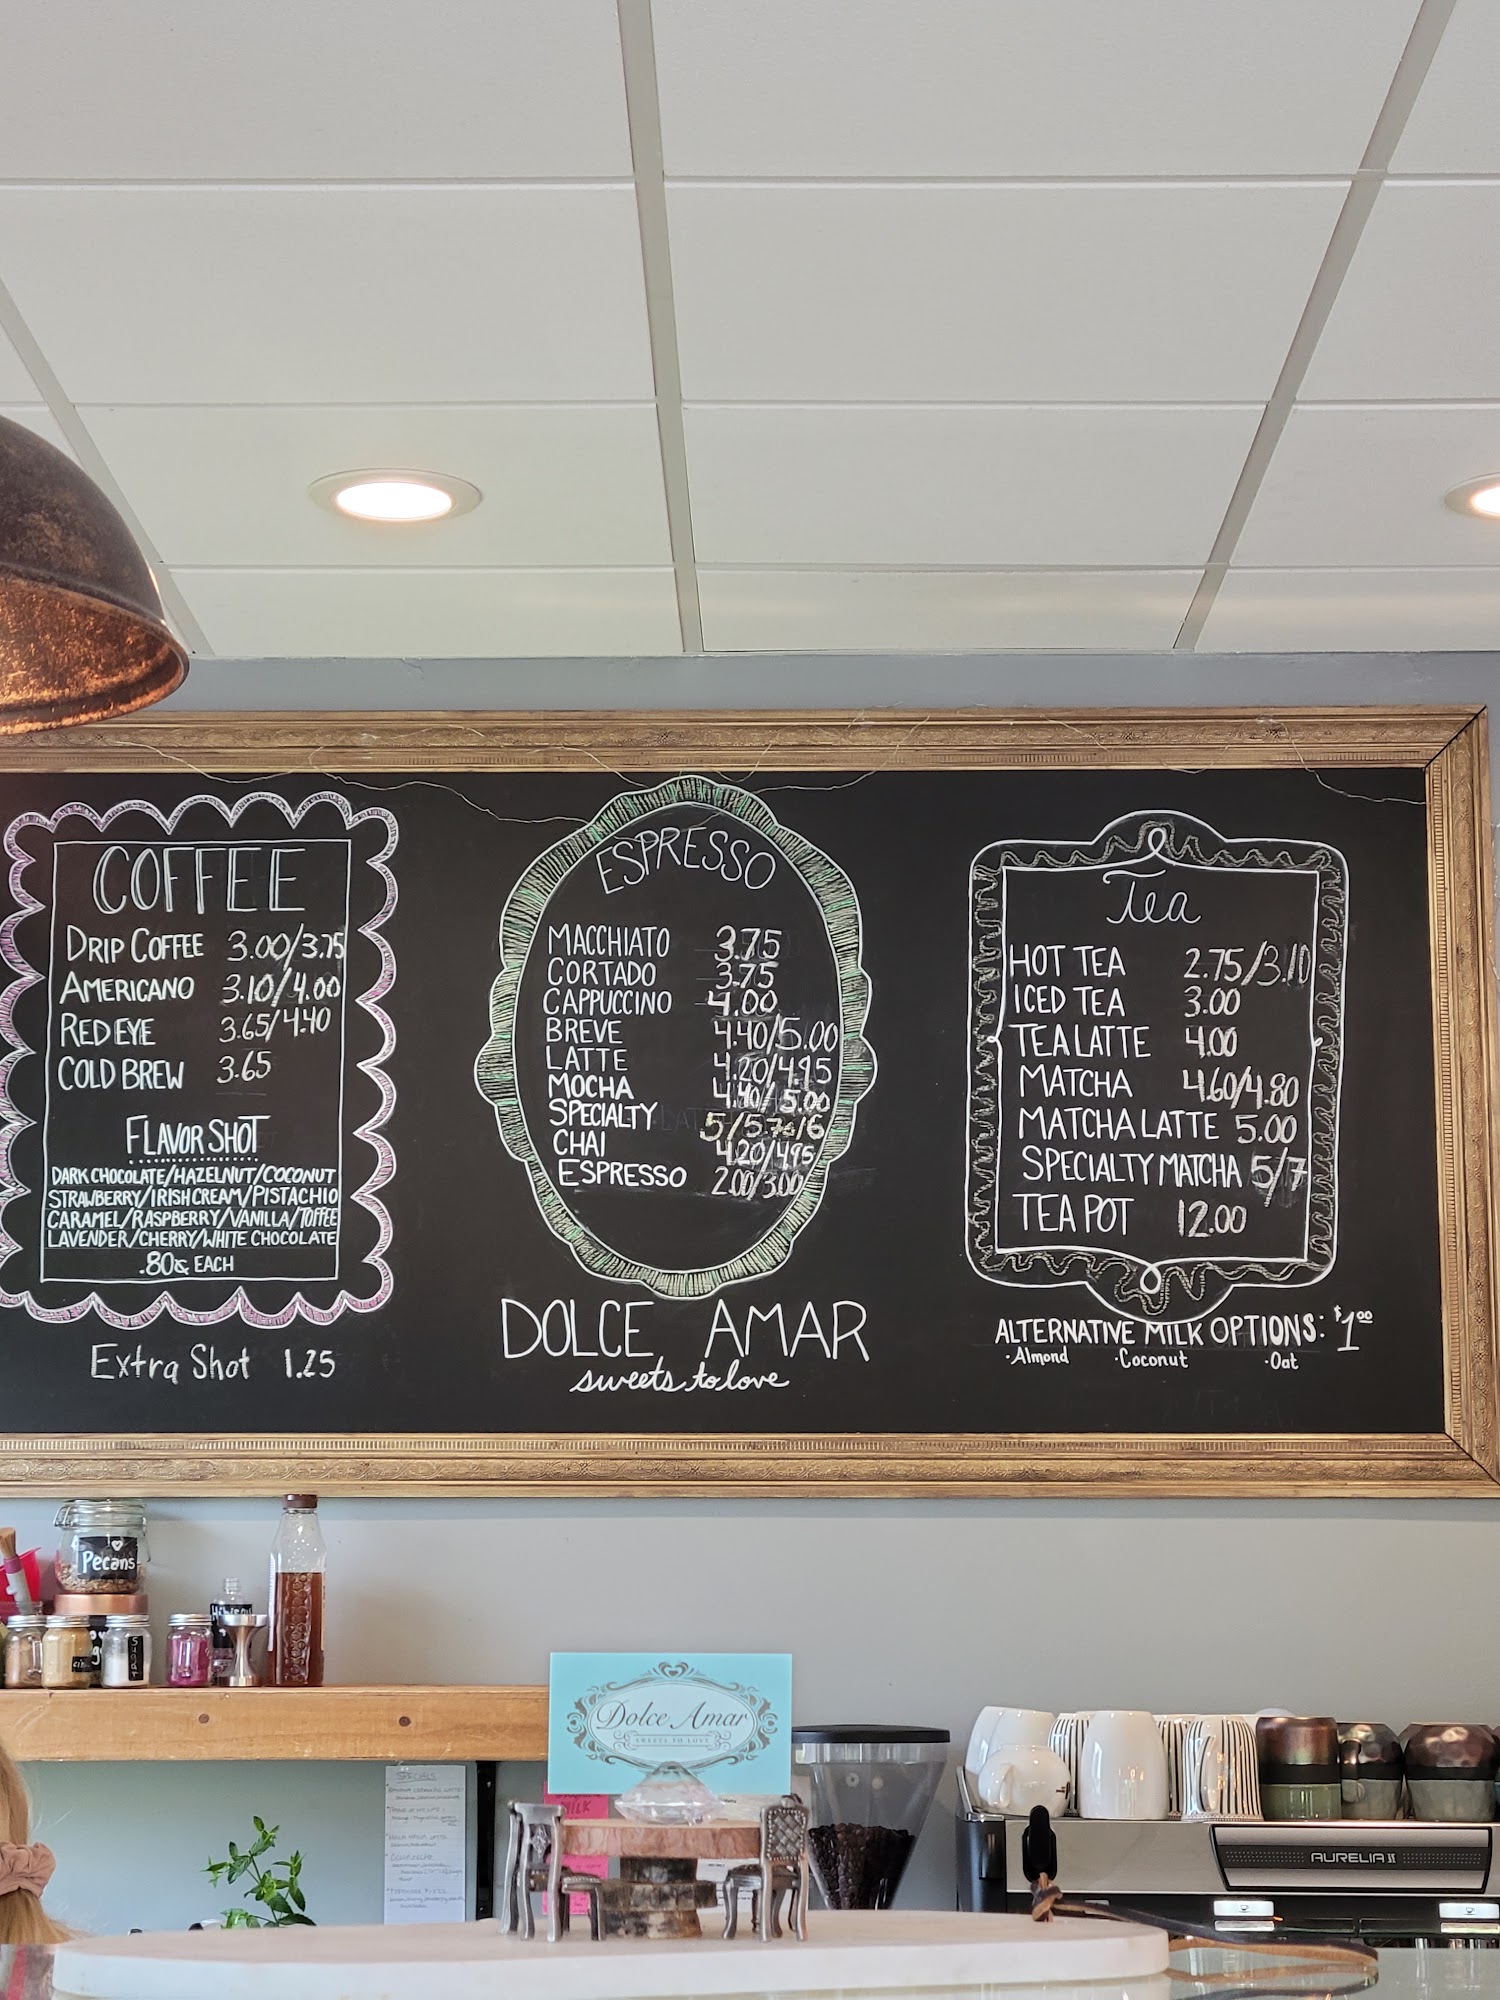 COFFEE
DRIP COFFEE 3.00/3.75
AMERICANO 3.10/4.00
RED EYE 3.65/4.40
COLD BREW 3.65
FLAVOR SHOT
DARK CHOCOLATE/HAZELNUT/COCONUT
STRAWBERRY/IRISH CREAM/PISTACHIO
CARAMEL/RASPBERRY/VANILLA/TOFFEE
LAVENDER/CHERRY/WHITE CHOCOLATE
.80¢ EACH
Extra Shot 1.25
ESPRESSO
MACCHIATO 3.75
CORTADO 3.75
CAPPUCCINO 4.00
BREVE 4.40/5.00
LATTE 4.20/4.95
MOCHA 4.40/5.00
SPECIALTY 5/5.70/6
CHAI 4.20/4.95
ESPRESSO 2.00/3.00
DOLCE AMAR
sweets to love
Tea
HOT TEA 2.75/3.10
ICED TEA 3.00
TEA LATTE 4.00
MATCHA 4.60/4.80
MATCHA LATTE 5.00
SPECIALTY MATCHA 5/7
TEA POT 12.00
ALTERNATIVE MILK OPTIONS: $1.00
·Almond ·Coconut ·Oat
Pecans
Sugar
Dolce Amar
SWEETS TO LOVE
SPECIALS
MILK
AURELIA II